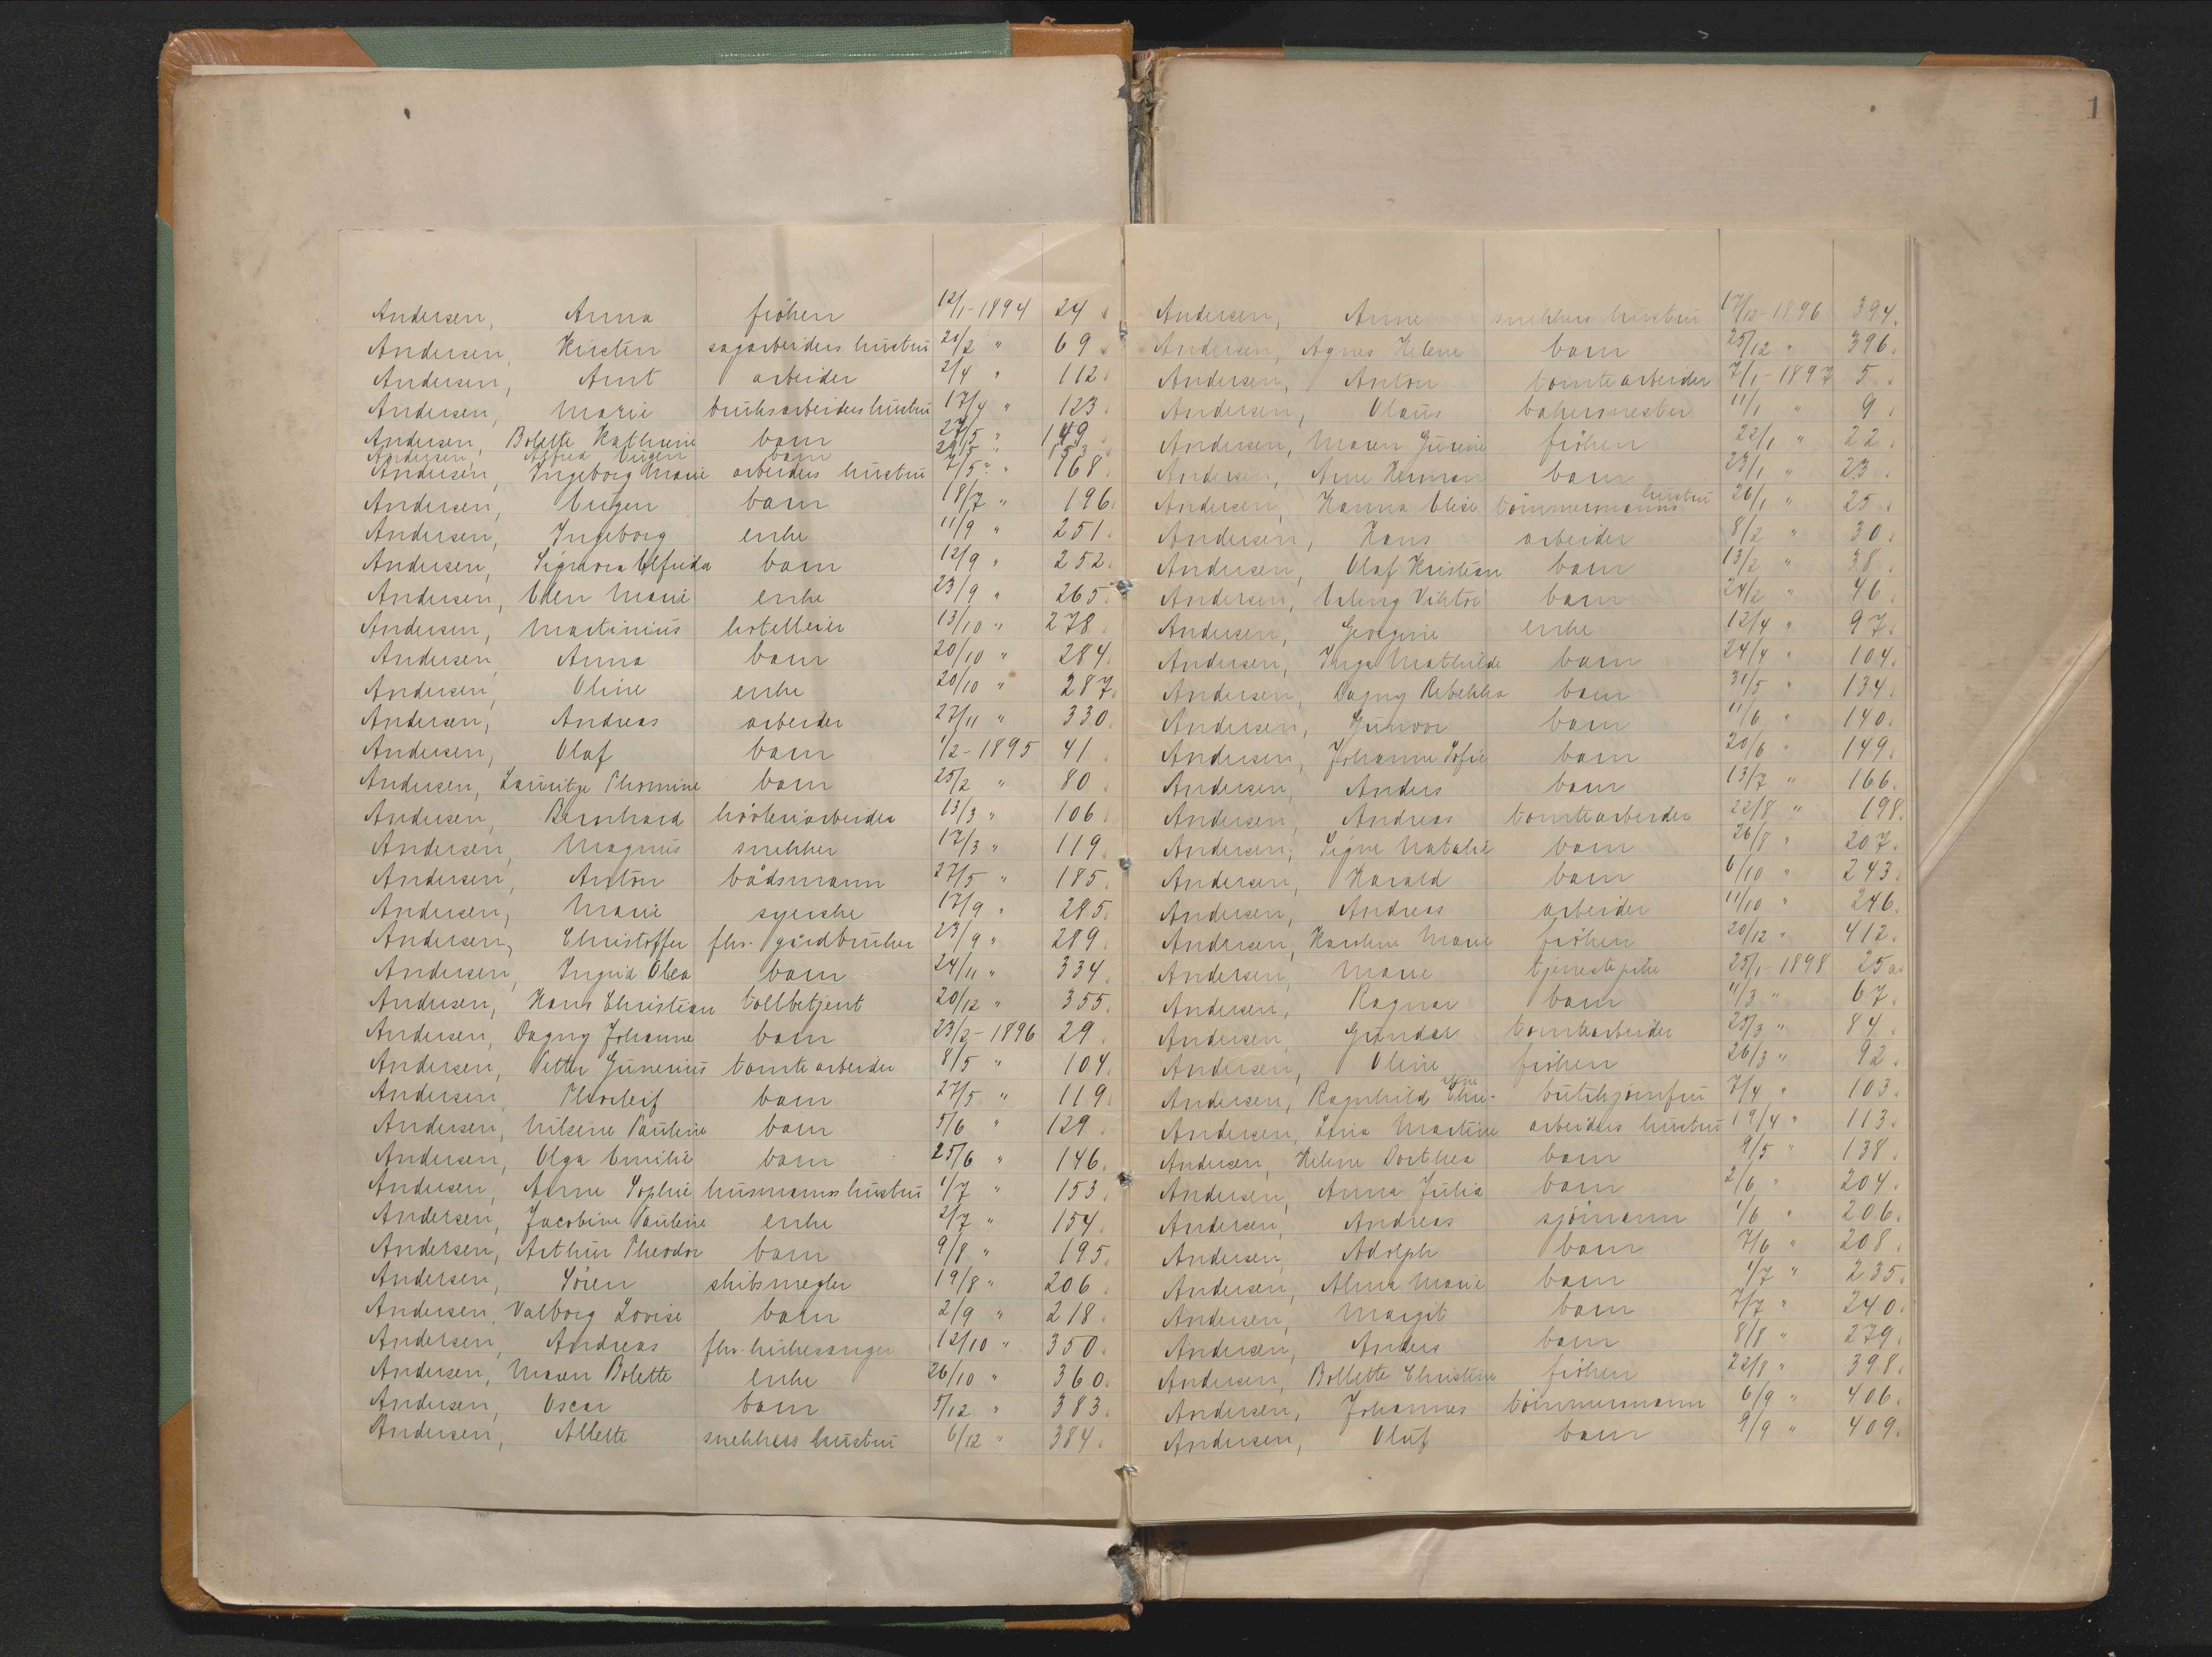 1
Andersen, Anna fröken 12/1-1894 24
Andersen, Kirsten sagarbeiders hustru 20/2 " 69
Andersen, Arnt arbeider 2/4 " 112
Andersen, Marie bruksarbeiders hustru 17/4 " 123
Andersen, Bolette Kathrine barn 27/5 " 149
Andersen, Alfred Eugen barn 153
Andersen, Ingeborg Marie arbeiders hustru 7/5 " 168
Andersen, Eugen barn 18/7 " 196.
Andersen, Ingeborg enke 11/9 " 251.
Andersen, Signora Elfrida barn 12/9 " 252.
Andersen, Ellen Marie enke 23/9 " 265.
Andersen, Martinius hotelleier 13/10 " 278
Andersen, Anna barn 20/10 " 284.
Andersen, Oline enke 20/10 " 287.
Andersen, Andreas arbeider 27/11 " 330.
Andersen, Olaf barn 1/2-1895 41
Andersen, Lauritze Thomine barn 25/2 " 80
Andersen, Bernhard hövleriarbeider 13/3 " 106
Andersen, Magnus snekker 17/3 " 119
Andersen, Anton bådsmann 27/5 " 185.
Andersen, Marie syerske 17/9 " 285.
Andersen, Christoffer fhv. gårdbruker 23/9 " 289
Andersen, Ingrid Olea barn 24/11 " 334
Andersen, Hans Christian tollbetjent 20/12 " 355.
Andersen, Dagny Johanne barn 23/2-1896 29.
Andersen, Petter Gunerius tomtearbeider 8/5 " 104.
Andersen, Thorleif barn 27/5 " 119.
Andersen, Nilsine Pauline barn 5/6 " 129.
Andersen, Olga Emilie barn 25/6 " 146.
Andersen, Anne Sophie husmanns hustru 1/7 " 153.
Andersen, Jacobine Pauline enke 2/7 " 154.
Andersen, Arthur Theodor barn 9/8 " 195.
Andersen, Sören skibsmegler 19/8 " 206
Andersen, Valborg Lovise barn 2/9 " 218.
Andersen, Andreas fhv. kirkesanger 12/10 " 350.
Andersen, Maren Bolette enke 26/10 " 360.
Andersen, Oscar barn 5/12 " 383.
Andersen, Allette snekkers hustru 6/12 " 384.
Andersen, Anne snekkers hustru 17/12-1896 394.
Andersen, Agnes Helene barn 25/12 " 396.
Andersen, Anton tomtearbeider 7/1-1897 5
Andersen, Olaus bakermester 11/1 " 9
Andersen, Maren Gurine fröken 22/1 " 22.
Andersen, Arne Herman barn 23/1 " 23
Andersen, Hanna Elise tömmermanns hustru 26/1 " 25
Andersen, Hans arbeider 8/2 " 30.
Andersen, Olaf Kristian barn 13/2 " 38
Andersen, Erling Viktor barn 24/2 " 46.
Andersen, Georgine enke 12/4 " 97.
Andersen, Inga Mathilde barn 24/4 " 104.
Andersen, Dagny Rebekka barn 31/5 " 134.
Andersen, Gunvor barn 11/6 " 140.
Andersen, Johanne Sofie barn 20/6 " 149.
Andersen, Anders barn 13/7 " 166.
Andersen, Andreas tomtearbeider 22/8 " 198.
Andersen, Signe Natalie barn 26/8 " 207.
Andersen, Harald barn 6/10 " 243.
Andersen, Andreas arbeider 11/10 " 246.
Andersen, Karoline Marie fröken 20/12 " 412.
Andersen, Marie tjenestepike 25/1-1898 25a.
Andersen, Ragnar barn 11/3 " 67.
Andersen, Gundar tomtearbeider 25/3 " 84.
Andersen, Oline fröken 26/3 " 92.
Andersen, Ragnhild butikjomfru 7/4 " 103.
Andersen, Martine arbeiders hustru 19/4 " 113.
Andersen, Helene Dorthea barn 9/5 " 138.
Andersen, Anna Julia barn 2/6 " 204.
Andersen, Andreas sjömann 1/6 " 206.
Andersen, Adolph barn 7/6 " 208.
Andersen, Alma Marie barn 1/7 " 235.
Andersen, Margit barn 7/7 " 240.
Andersen, Anders barn 8/8 " 279.
Andersen, Bollette Christine fröken 22/8 " 398.
Andersen, Johannes tömmermann 6/9 " 406.
Andersen, Oluf barn 9/9 " 409.